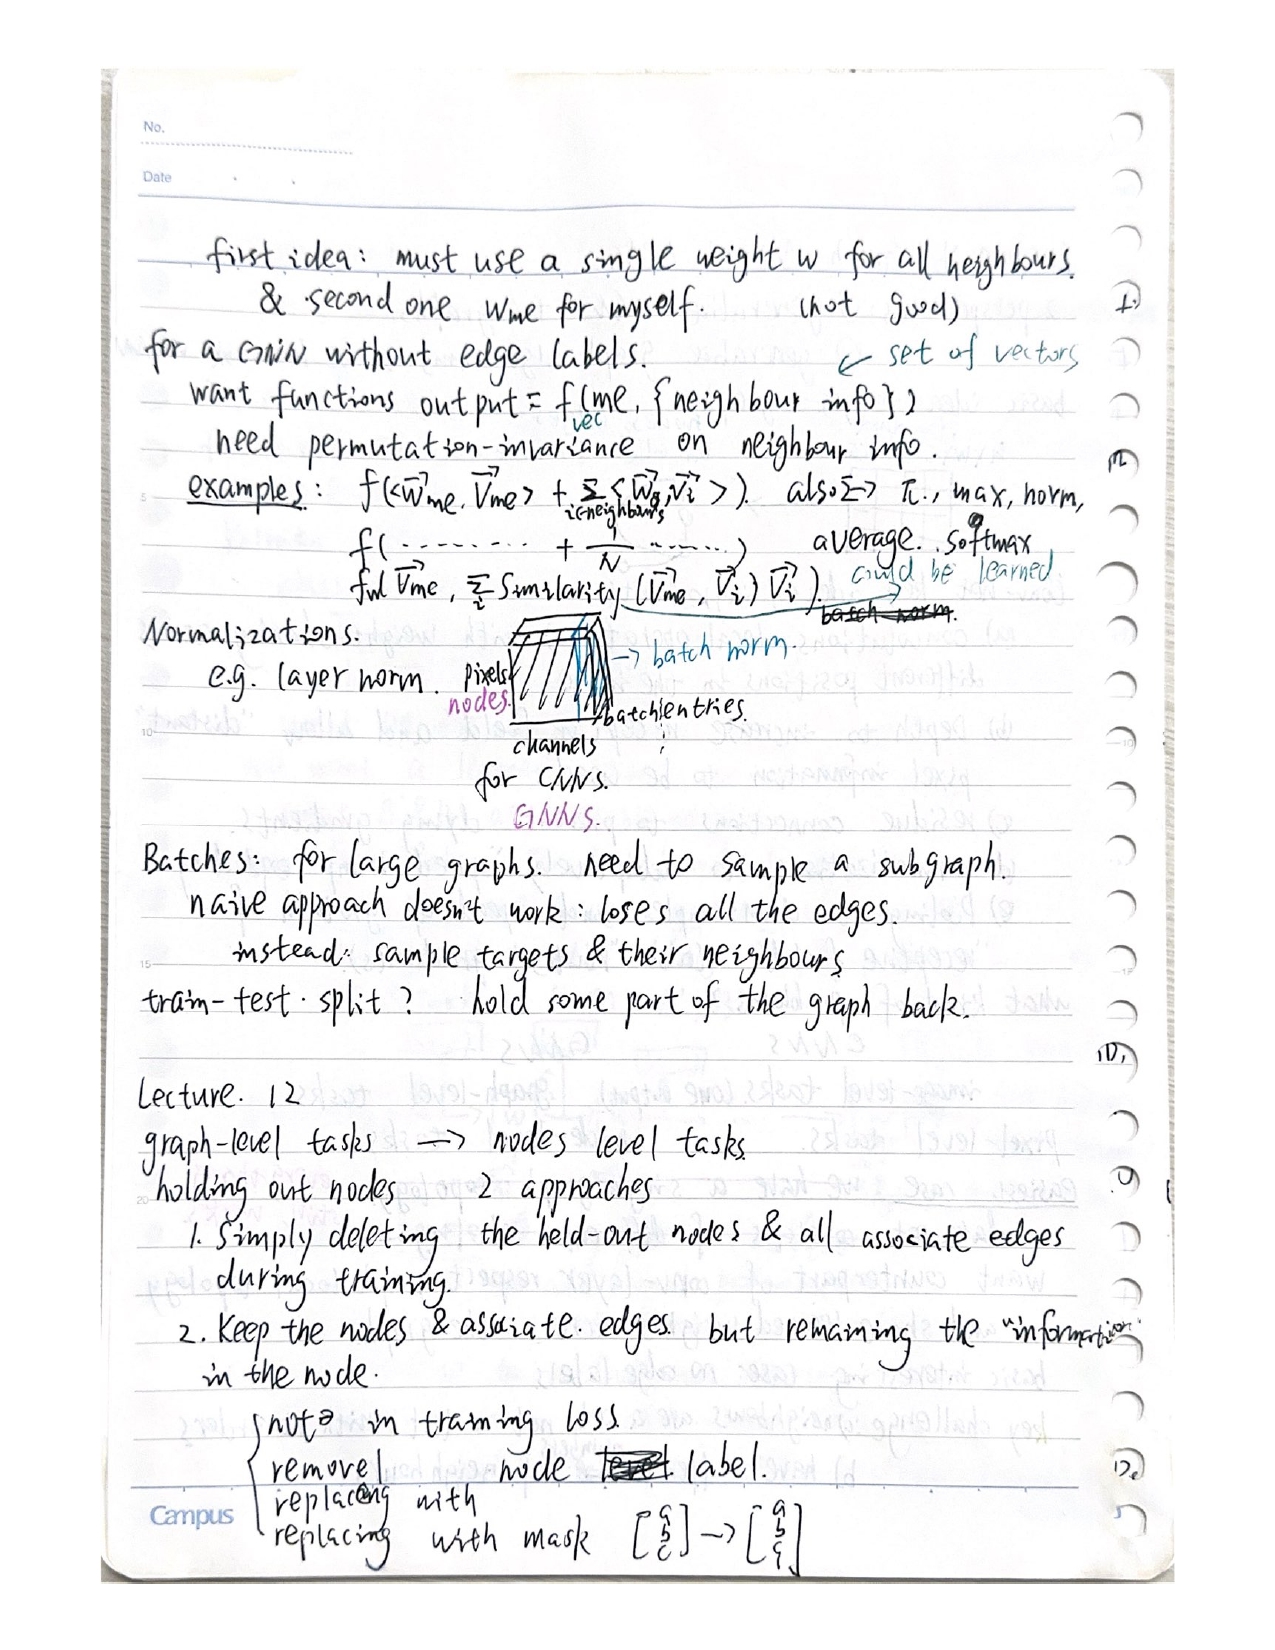 No.
Date
first idea: must use a single weight w for all neighbours.
& second one Wme for myself. (not good)
for a GNN without edge labels. ← set of vectors
want functions output = f(me, {neighbour info})
vec
need permutation-invariance on neighbour info.
examples: f(<W⃗me, V⃗me> + Σ <W⃗g, V⃗i>). also Σ→ π., max, norm,
i∈neighbours
f( ........ + 1/N ......) average. softmax
could be learned
V⃗me, Σi Similarity (V⃗me, V⃗i) V⃗i).
batch norm.
Normalizations.
→ batch norm.
e.g. layer norm. pixels
nodes.
batch entries.
channels
for CNNs.
GNNs.
Batches: for large graphs. need to sample a subgraph.
naive approach doesn't work: loses all the edges.
instead: sample targets & their neighbours
train-test split? hold some part of the graph back.
Lecture. 12
graph-level tasks → nodes level tasks
holding out nodes 2 approaches
1. Simply deleting the held-out nodes & all associate edges
during training.
2. Keep the nodes & associate edges. but remaining the "information"
in the node.
not in training loss
remove node level label.
replacing with
replacing with mask [a b c] → [a b c 1]
Campus